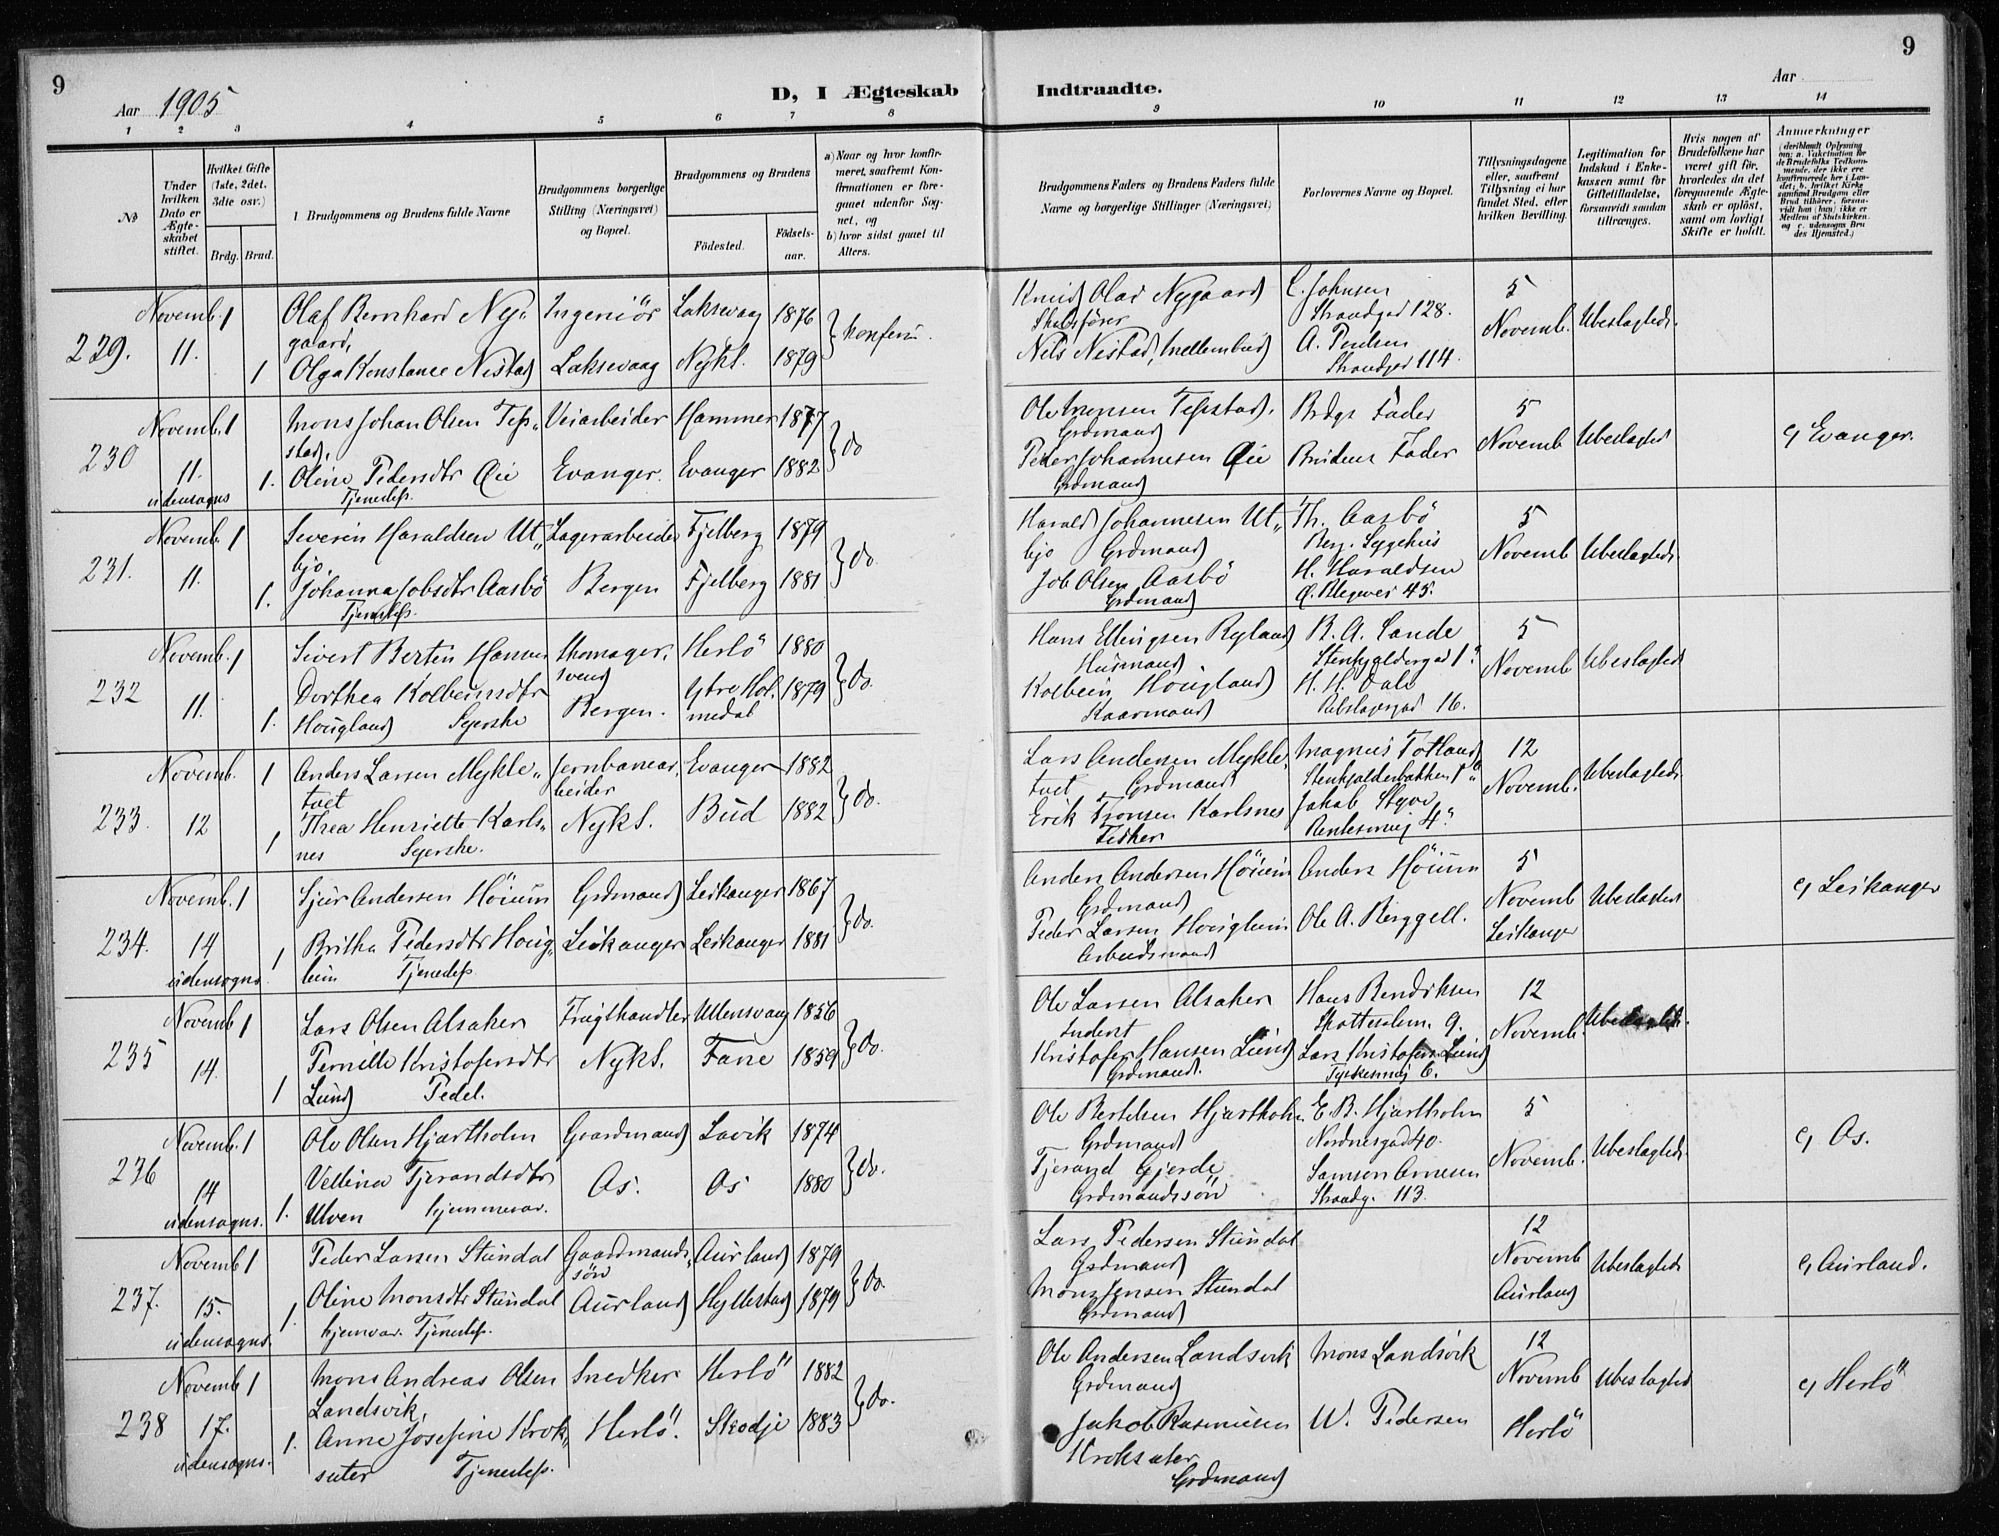 9
9
Aar 1905
D, I Ægteskab
Indtraadte.
Aar
1 2 3 4 5 6 7 8 9 10 11 12 13 14
No
Under hvilken Dato er Ægteskabet stiftet.
Hvilket Gifte (1ste, 2det. 3die osv.)
Brdg. Brud.
Brudgommens og Brudens fulde Navne
Brudgommens borgerlige Stilling (Næringsvei) og Bopæl.
Brudgommens og Brudens
Födested.
Födselsaar.
a) Naar og hvor konfirmeret, saafremt Konfirmationen er foregaaet udenfor Sognet, og
b) hvor sidst gaaet til Alters.
Brudgommens Faders og Brudens Faders fulde Navne og borgerlige Stillinger (Næringsvei)
Forlovernes Navne og Bopæl.
Tillysningsdagene eller, saafremt Tillysning ei har fundet Sted, efter hvilken Bevilling.
Legitimation for Indskud i Enkekassen samt for Giftetilladelse, forsaavidt saadan tiltrænges.
Hvis nogen af Brudefolkene har været gift för, hvorledes da det foregaaende Ægteskab er oplöst, samt om lovligt Skifte er holdt.
Anmerkninger
229. Novemb. 11. 1 1
Olaf Bernhard Nygaard,
Olga Konstance Nistad
Ingeniör
Laksevaag
Laksevaag 1876
Nykl. 1879
konfem.
Knud Olai Nygaard
Skibsförer
Nels Nistad,
C. Johnsen
Strandgad 128.
A. Poulsen
Strandgad 114.
5 Novemb.
Ubeslagtede
230 Novemb. 11. udensogns 1 1.
Mons Johan Olsen Tepstad,
Oline Pedersdtr Øie
Tjenestep.
Veiarbeider
Evanger.
Hammer 1877
Evanger 1882
do
Ole Monsen Tepstad,
Grdmand
Peder Johannesen Øie
Grdmand
Brdgs Fader
Brudens Fader
5 Novemb
Ubeslagted
c, Evanger.
231. Novemb 11. 1 1.
Severin Haraldsen Utbjo,
Johanna Jobsdtr Aasbö
Tjenestep.
Lagerarbeider
Bergen
Fjelberg 1879
Fjelberg 1881
do.
Harald Johannesen Utbjo Grdmand
Job Olsen Aasbö
Grdmand
Th. Aasbö
Berg. Sygehus
H. Haraldsen
45.
5 Novemb
Ubeslagtede
232 Novemb. 11. 1 1.
Sivert Bertin Hansen
Dorthea Kolbeinsdtr
Hougland Syerske
Skomagersvend
Bergen.
Herlö 1880
Ytre Holmedal 1879
do.
Hans Ellingsen Ryland
Husmand
Kolbein Hougland
Kaarmand
B. A. Sande
H. H. Dale
16.
5 Novemb
Ubeslagted
233. Novemb. 12 1 1
Anders Larsen Mykletvet
Thea Henriette Karlsnes Syerske.
Jernbanearbeider
Nykl.
Evanger 1882
Bud 1882
do.
Lars Andersen Mykletvet, Grdmand
Erik Tronsen Karlsnes
Fisker
Magnus Totland
Jakob Styve
12 Novemb.
Ubeslagtede
234. Novemb. 14 udensogns. 1 1
Sjur Andersen Höium
Britha Pedersdtr Houglum Tjenestep
Grdmand
Leikanger
Leikanger 1867
Leikanger 1881
do.
Anders Andersen Höium
Grdmand
Peder Larsen Houglum
Arbeidsmand
Anders Höium
Ole A. Berggell.
5 Novemb
Leikanger
Ubeslagted
c, Leikanger
235 Novemb 14. 1 1
Lars Olsen Alsaker
Pernille Kristofersdtr
Lund Pedel.
Frugthandler
Nykl.
Ullensvang 1856
Fane 1859
do.
Ole Larsen Alsaker
Inderst
Kristofer Hansen Lund
Grdmand.
Hans Bendiksen
9.
Lars Kristofers. Lund
6.
12 Novemb.
236 Novemb. 14 udensogns. 1 1.
Ole Olsen Hjartholm
Vellina Tjerandsdtr
Ulven hjemmevær.
Gaardmand
Os.
Lavik 1874
Os 1880
do.
Ole Bertelsen Hjartholm
Grdmand
Tjerand Gjerde
Grdmandssön
E. B. Hjartholm
Nordnesgad 40.
Samson Arnesen
Strandg. 113.
5 Novemb.
Ubeslagted.
c, Os.
237. Novemb 15. udensogns. 1 1.
Peder Larsen Stundal
Oline Monsdtr Stundal
hjemvær. Tjenestep.
Gaardmandssön
Aurland
Aurland 1879
Hyllestad 1879
do.
Lars Pedersen Stundal
Grdmand
Mons Jensen Stundal
Grdmand
12 Novemb
Aurland
Ubeslagted
c, Aurland.
238 Novemb 17. udensogns. 1 1.
Mons Andreas Olsen
Landsvik,
Anne Josefine Kroksæter Tjenestep.
Snedker
Herlö.
Herlö 1882
Skodje 1883
do.
Ole Andersen Landsvik
Grdmand
Jakob Rasmusen
Kroksæter
Grdmand
Mons Landsvik
W. Pedersen
12 Novemb
Herlö
Ubeslagted
c, Herlö